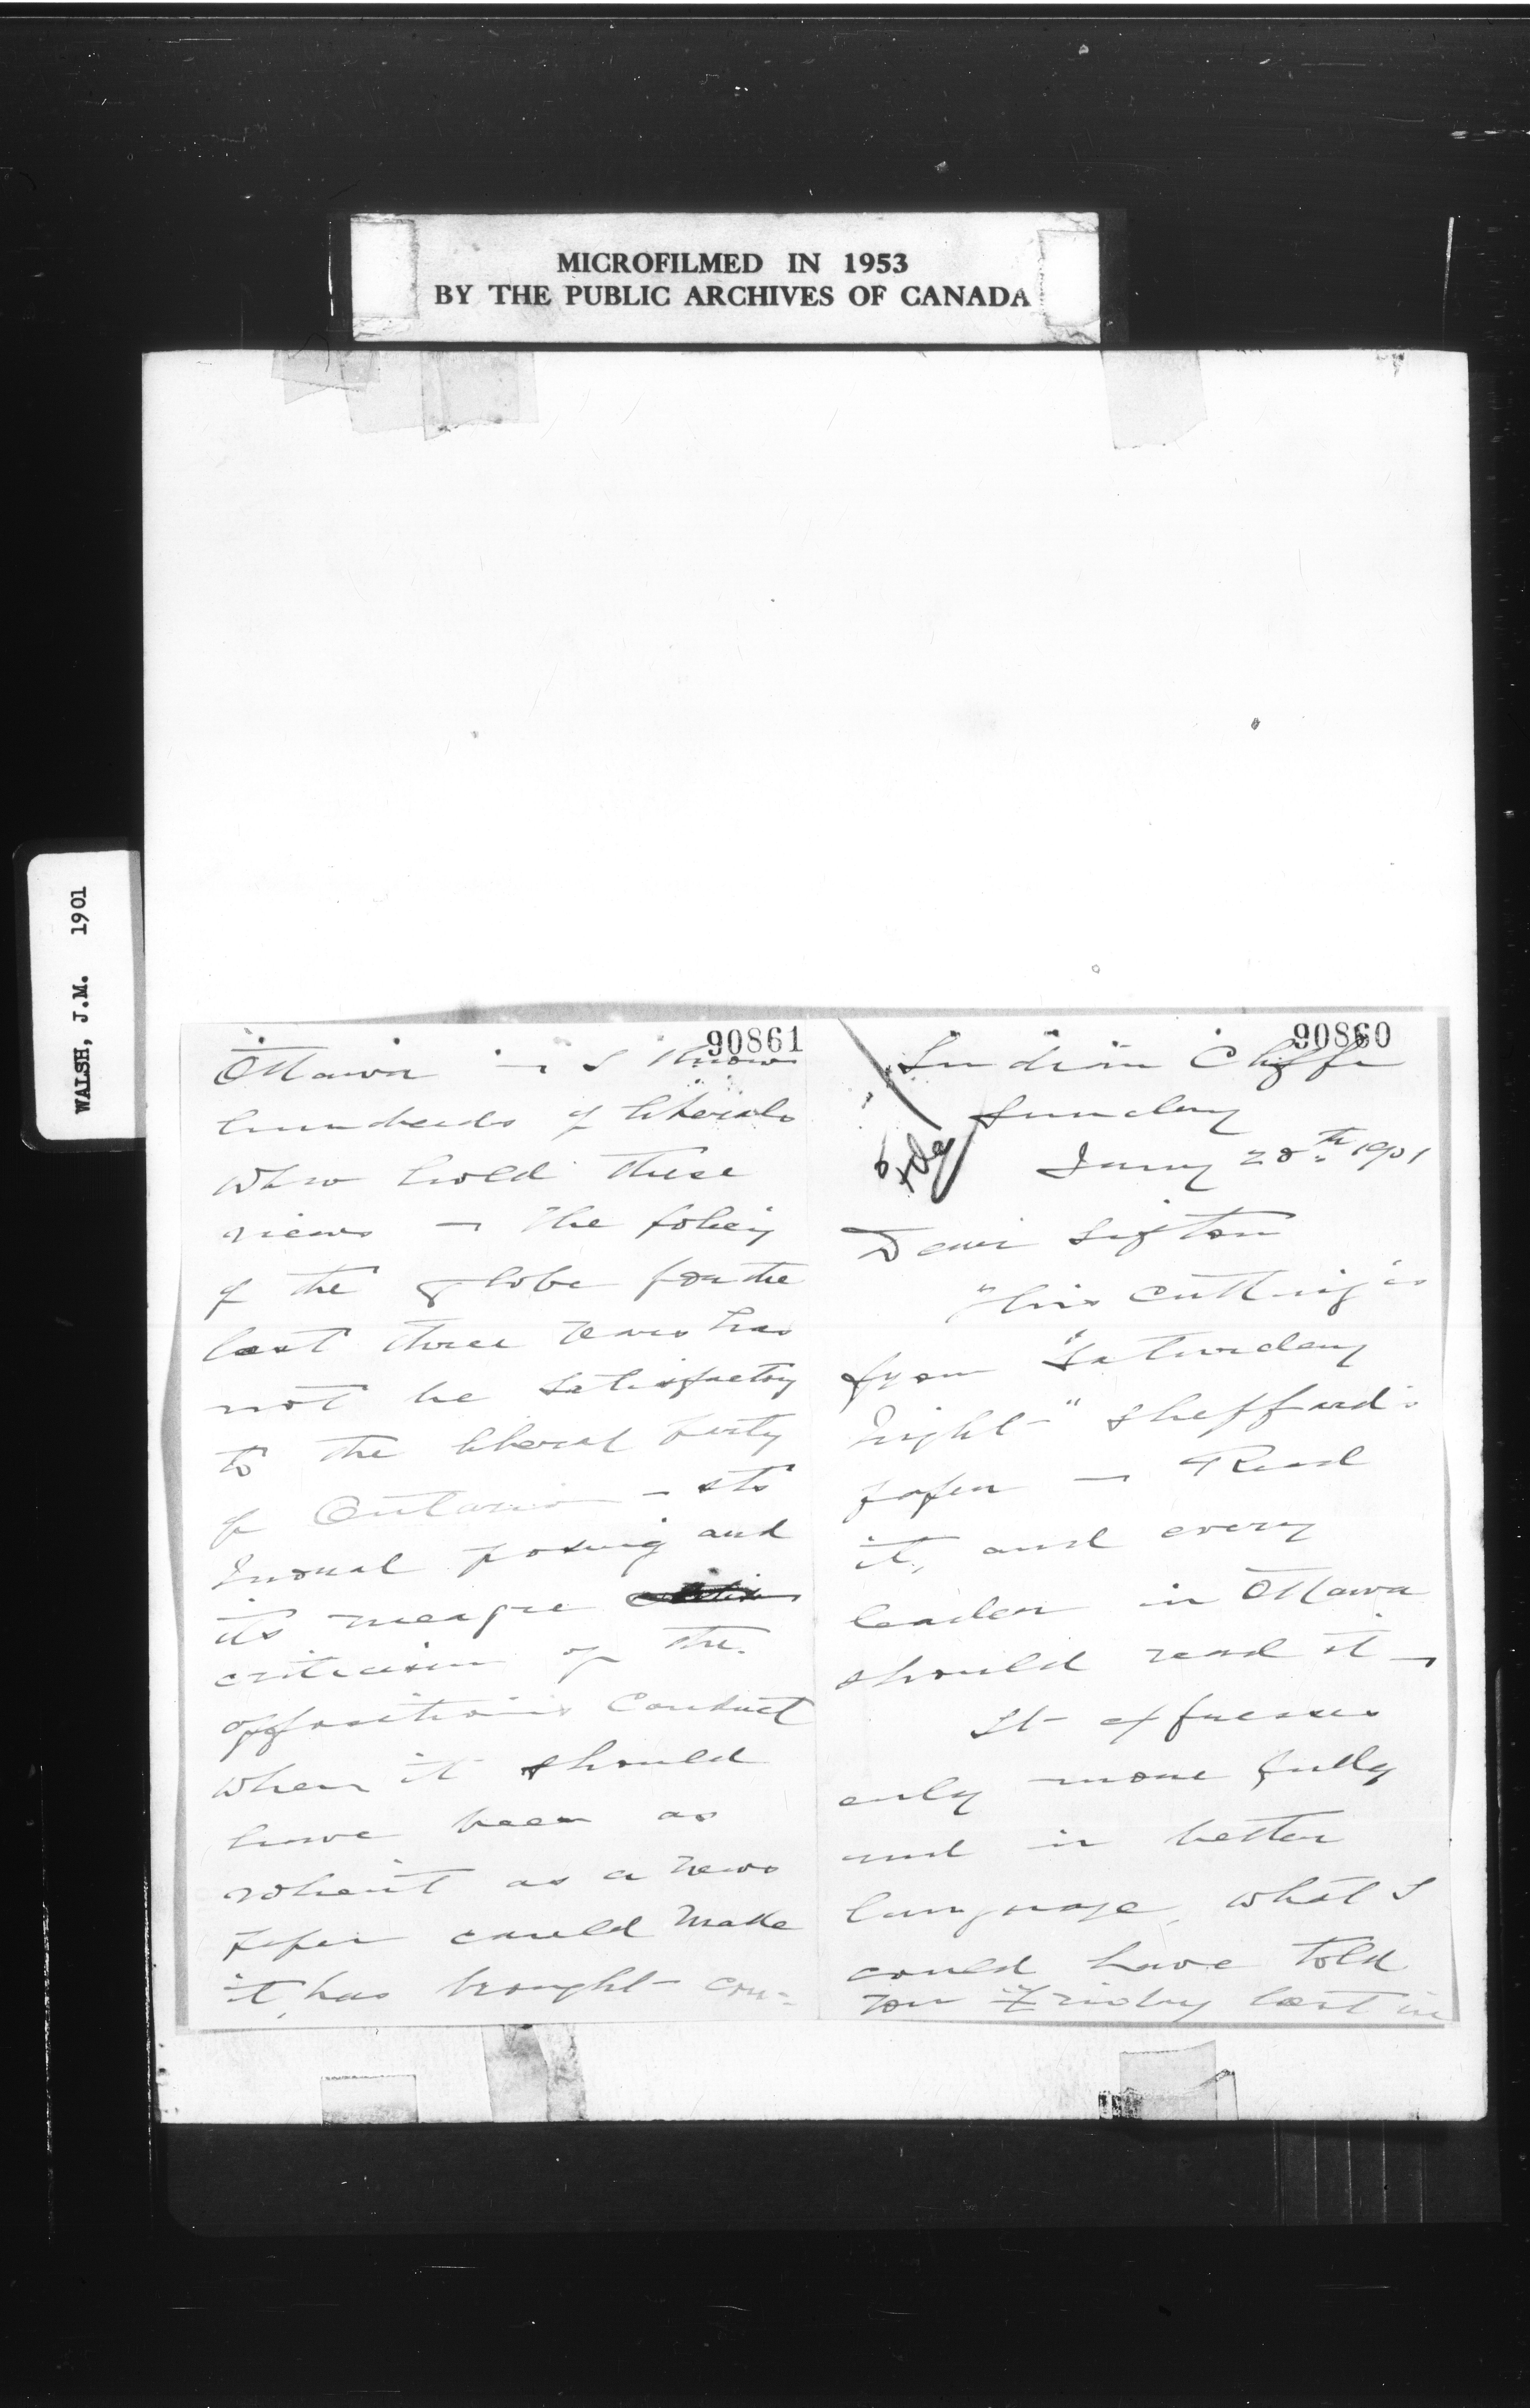 MICROFILMED IN 1953
BY THE PUBLIC ARCHIVES OF CANADA
WALSH, J.M. 1901
90860
Indian Cliffe
Sunday
Jany 20th 1901
Dear Sifton
This cutting is
from "Saturday
Night" Sheppard's
paper — Read
it, and every
leader in Ottawa
should read it —
It expresses
only more fully
and in better
language, what I
could have told
you Friday last in
90861
Ottawa — I know
hundreds of liberals
who hold these
views — The policy
of the Globe for the
last three years has
not be satisfactory
to the liberal party
of Ontario — its
moral posing and
its meagre
criticism of the
opposition's conduct
when it should
have been as
violent as a news
paper could make
it, has brought con-